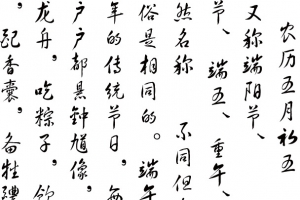 农历五月初五
又称端阳节、
节、端五、重午、
然名称 不同但
俗是相同的。端午
年的传统节日，每
户户都悬钟馗像，
龙舟，吃粽子，饮
，配香囊，备牲醴